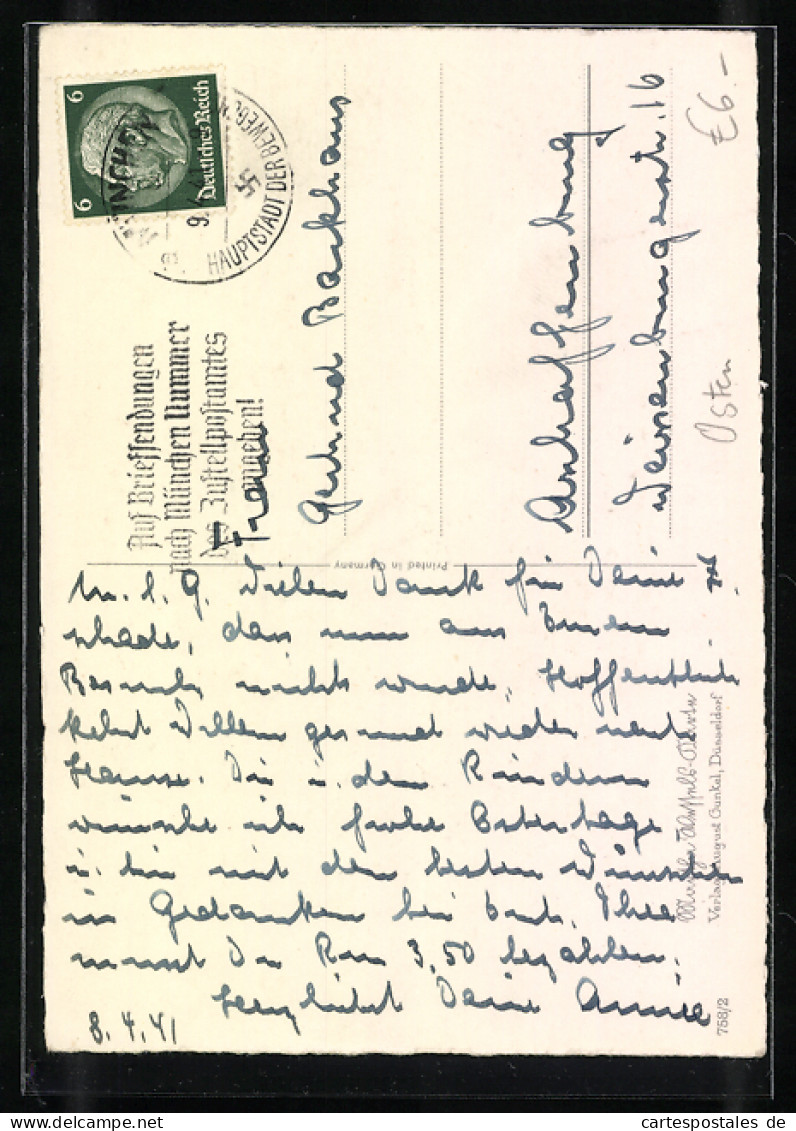 6
6
Deutsches Reich
MÜNCHEN
HAUPTSTADT DER BEWEGUNG
Auf Briefsendungen
nach München Nummer
des Zustellpostamtes
angeben!
Frau
Gerhard Backhaus
Aschaffenburg
Weissenburgerstr. 16
£6.-
Osten
Printed in Germany
M. l. G. Vielen Dank für Deine
schade, dass nun aus Eurem
Besuch nichts wurde. Hoffentlich
kehrt Willem gesund wieder nach
Hause. Dir u. den Kindern
wünsche ich frohe Ostertage
u. bin mit den besten Wünschen
in Gedanken bei Euch.
musst Du Rm 3,50 bezahlen.
Herzlichst Deine Annie
8.4.41
Verlag August Gunkel, Düsseldorf
758/2
cartespostales de